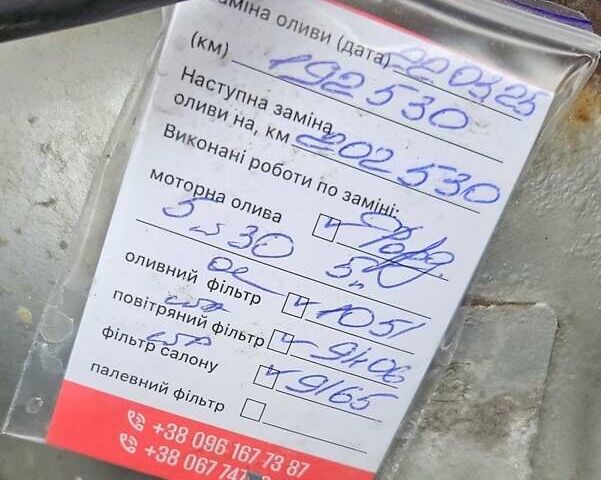 заміна оливи (дата) 220325
(км) 192530
Наступна заміна
оливи на, км 202530
Виконані роботи по заміні:
моторна олива
5w30 5л
оливний фільтр ос 1051
повітряний фільтр 9406
фільтр салону 9165
палевний фільтр
+38 096 167 73 87
+38 067 747